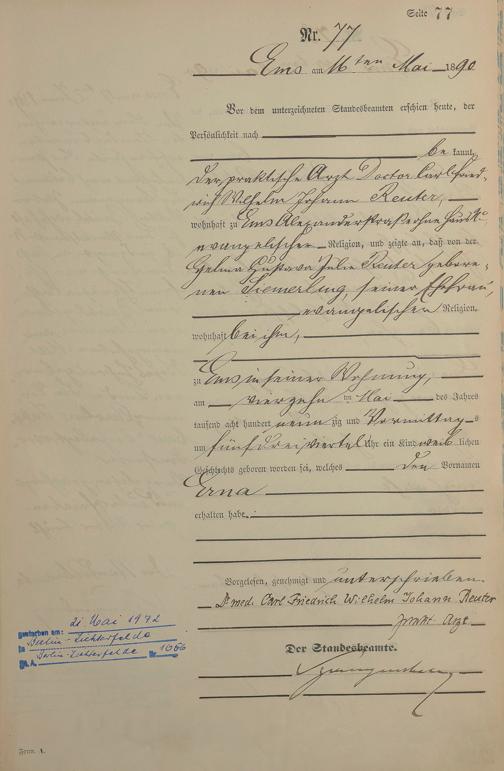 Seite 77
Nr. 77
Ems am 16ten Mai 1890
Vor dem unterzeichneten Standesbeamten erschien heute, der
Persönlichkeit nach
be kannt,
der praktische Arzt Doctor Carl Fried-
rich Wilhelm Johann Reuter,
wohnhaft zu Ems Alexanderstraße ohne
evangelischer Religion, und zeigte an, daß von der
Gustava Julie Reuter gebore-
nen Siemerling, seiner Ehefrau,
evangelischen Religion,
wohnhaft bei ihm,
zu Ems in seiner Wohnung,
am vierzehn ten Mai des Jahres
tausend acht hundert neun zig und Vormittags
um fünf dreiviertel Uhr ein Kind weib lichen
Geschlechts geboren worden sei, welches den Vornamen
Erna
erhalten habe.
Vorgelesen, genehmigt und unterschrieben.
Dr med. Carl Friedrich Wilhelm Johann Reuter
prakt. Arzt
Der Standesbeamte.
gestorben am: 21 Mai 1942
in Berlin-Lichterfelde
St. A. Berlin-Lichterfelde Nr. 1066
Form. A.